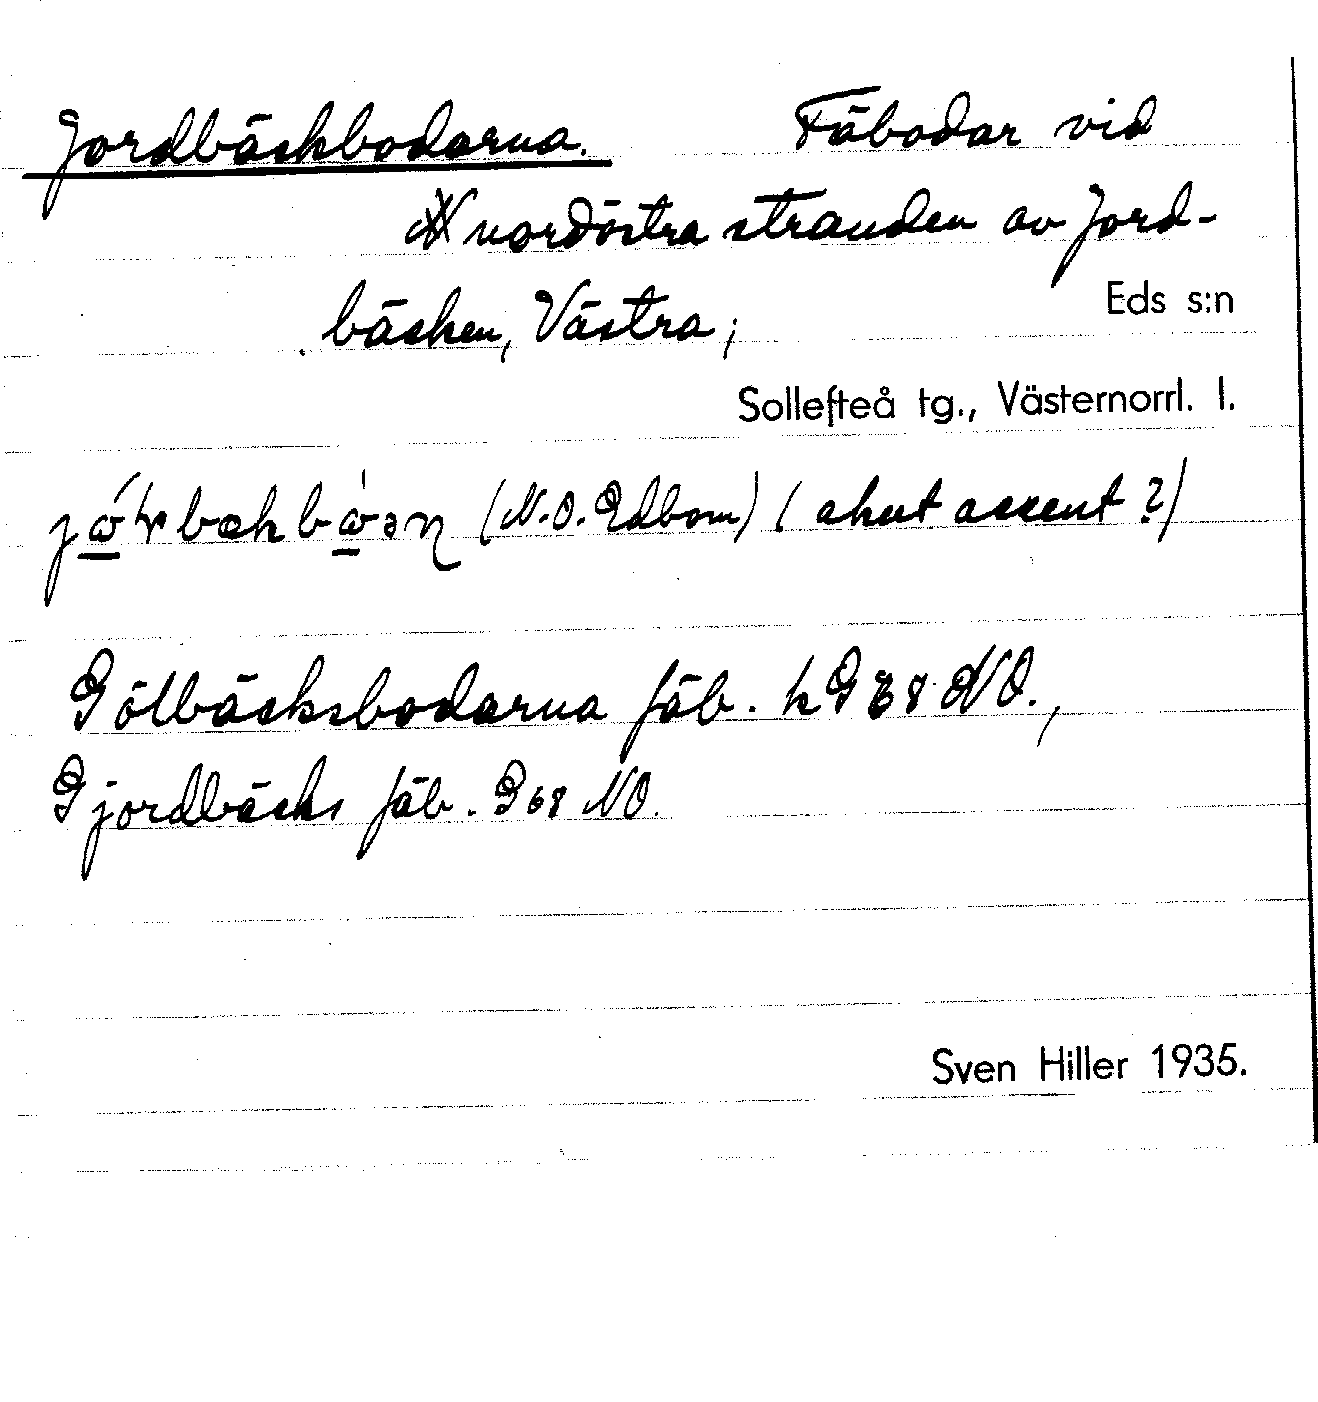 Jordbäckbodarna. Fäbodar vid
nordöstra stranden av Jord-
bäcken, Västra;
Eds s:n
Sollefteå tg., Västernorrl. l.
(N.O. Edbom) (akut accent?)
Gölbäcksbodarna fäb. hGE8 NO.,
Gjordbäcks fäb. G68 NO.
Sven Hiller 1935.